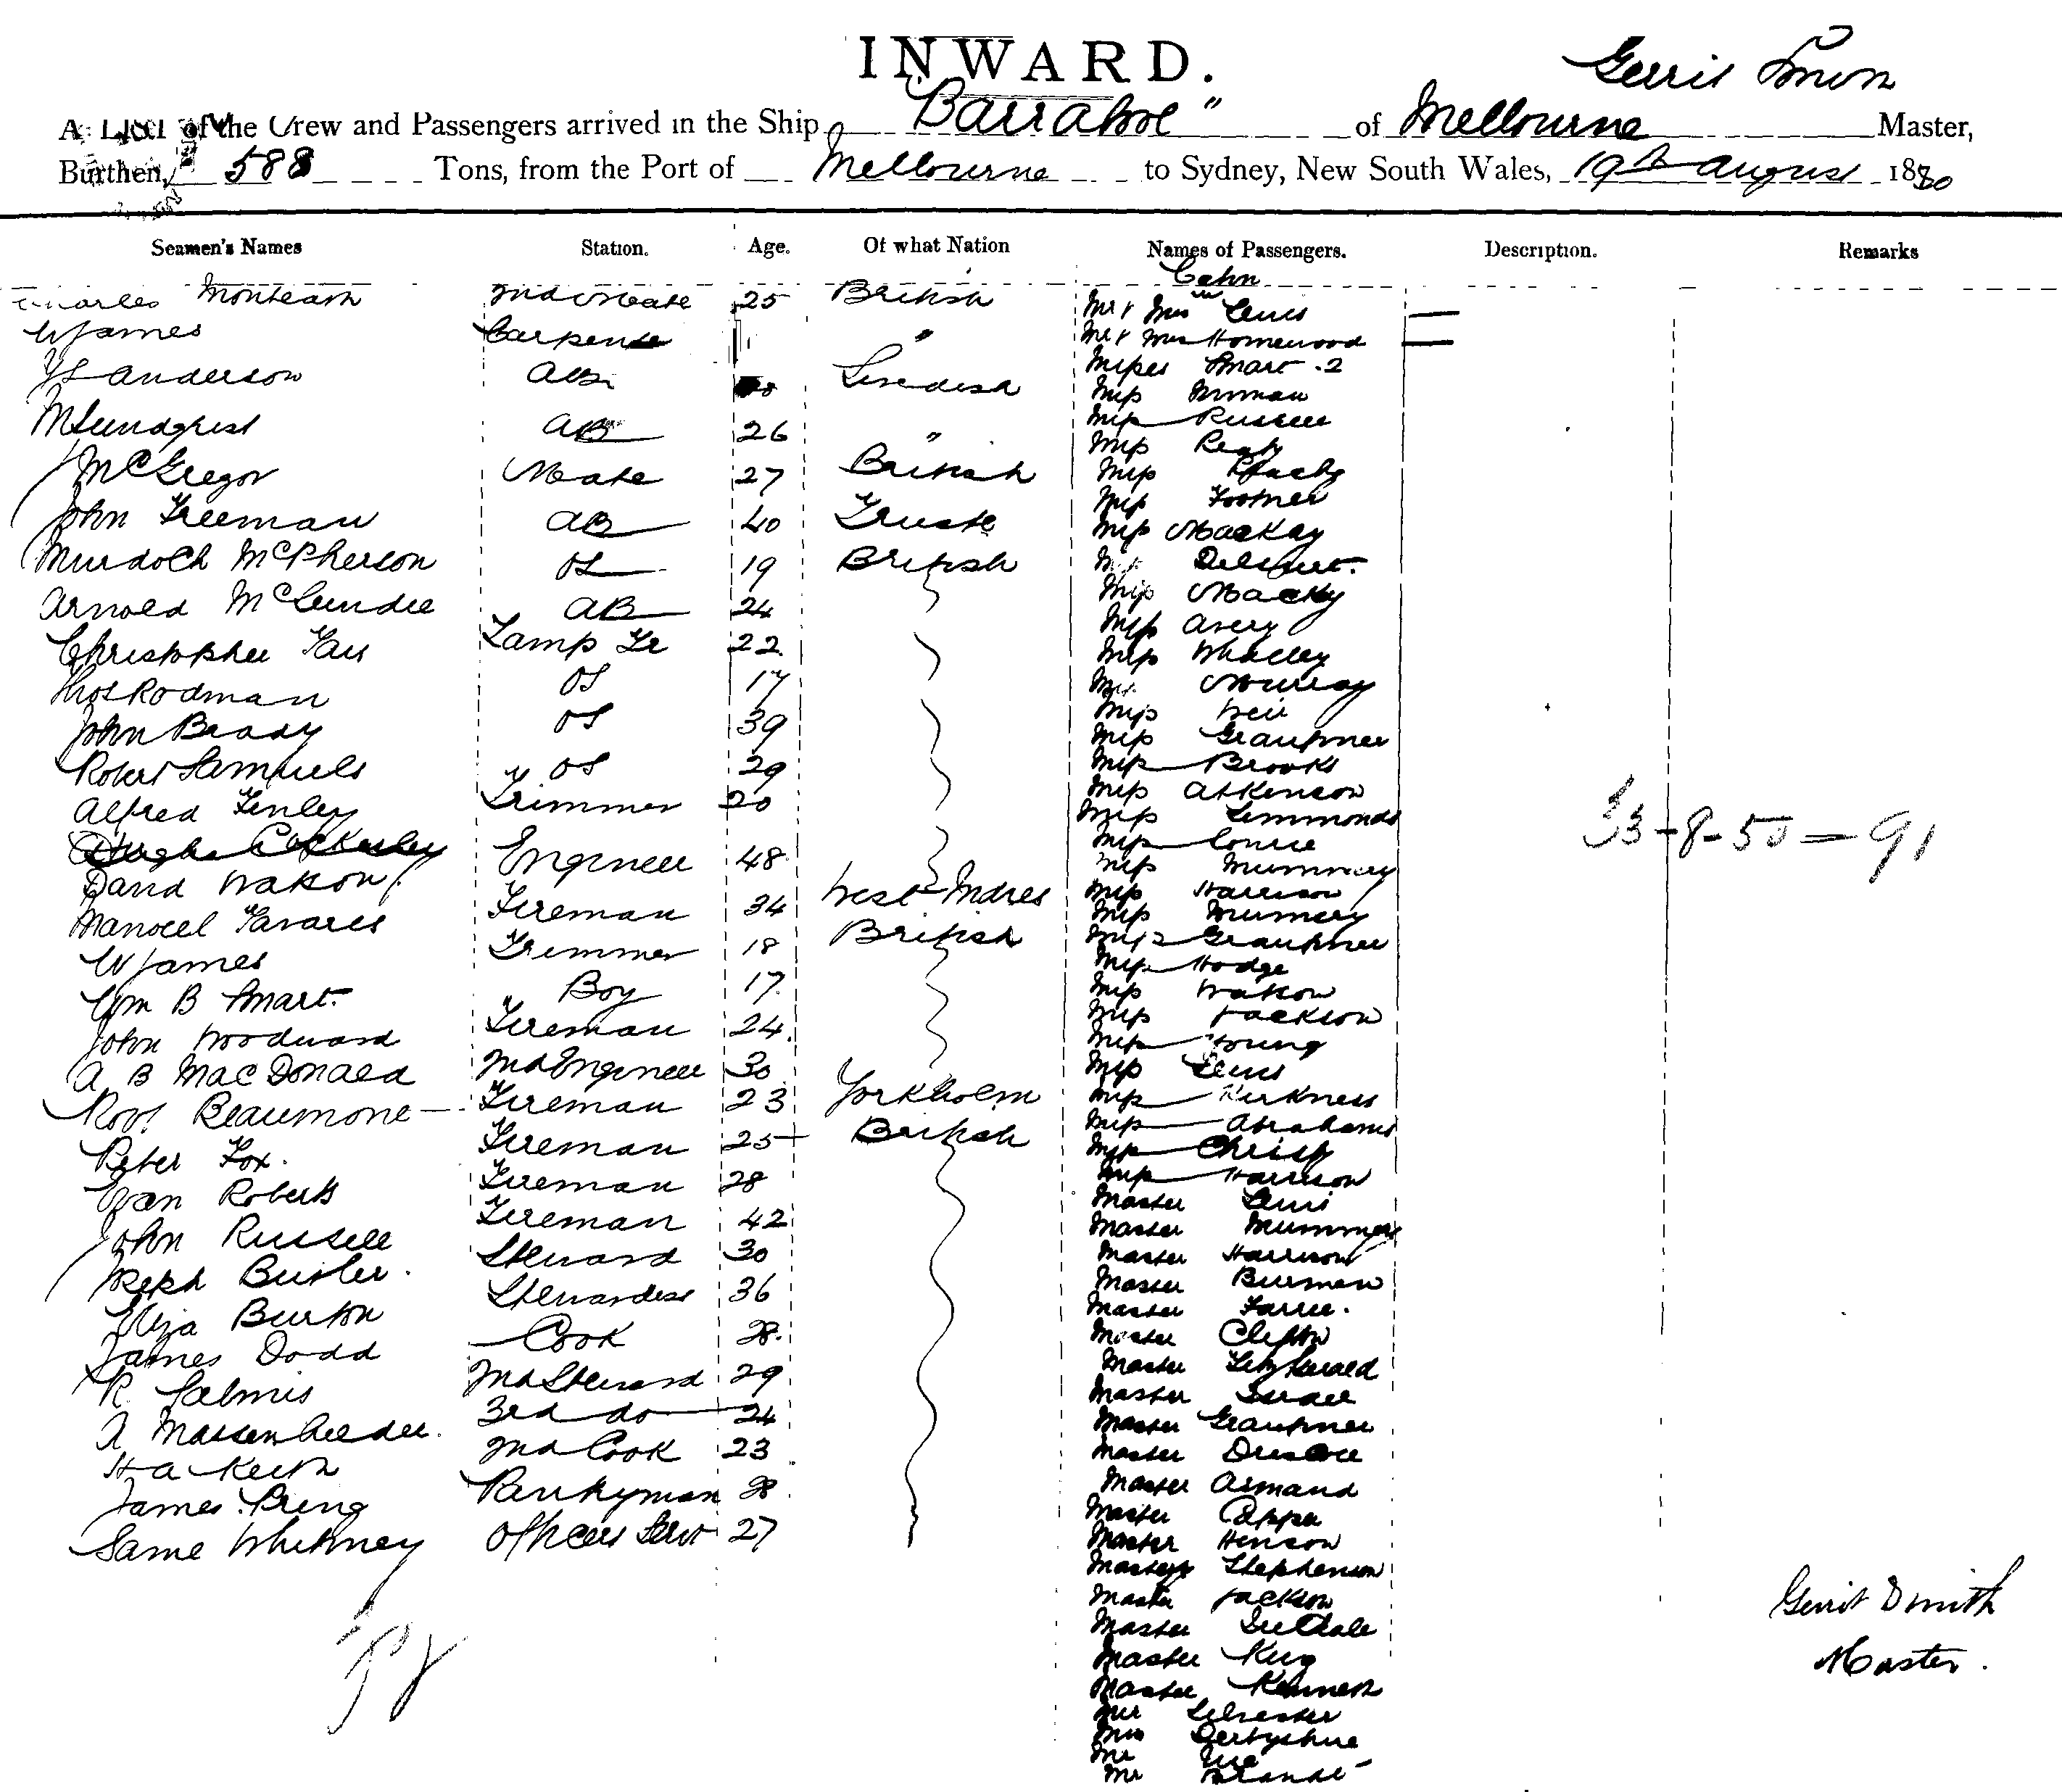 INWARD.
Gerrit Smith
A List of the Crew and Passengers arrived in the Ship "Barrabool" of Melbourne Master,
Burthen, 588 Tons, from the Port of Melbourne to Sydney, New South Wales, 19th August 1880
Seamen's Names Station. Age. Of what Nation Names of Passengers. Description. Remarks
Cabin
Charles Monteath 2nd Mate 25 British Mr & Mrs Lewis
W James Carpenter " Mr & Mrs Homewood
Anderson AB Swedish Misses Smart .2
M Lundqvist AB 26 " Miss
Miss Russell
McGregor Mate 27 British Miss
Miss
John Freeman AB 40 Miss
Miss MacKay
Murdoch McPherson OS 19 British
Arnold AB 24 Miss Macky
Miss Avery
Christopher Lamp Tr 22 Miss Whalley
Thos Rodman OS 17 Miss Murray
John Brady OS 39 Miss Weir
Miss Graupner
Robert Samuels OS 29 Miss Brooks
Alfred Finley Trimmer 20 Miss Atkinson
Miss Simmonds
33-8-50=91
Miss
David Watson Engineer 48 Miss Mummery
Manoel Tavares Fireman 34 West Indies Miss Harrison
Miss Mummery
W James Trimmer 18 British Miss Graupner
Miss Hodge
Wm B Smart Boy 17 Miss Watson
John Woodward Fireman 24 Miss Jackson
Miss Young
A B MacDonald 2nd Engineer 30 Miss Lewis
Robt Beaumont Fireman 23 Miss Kirkness
Miss Abrahams
Peter Fox. Fireman 25 British Miss Christy
Evan Roberts Fireman 28 Miss Harrison
Master Lewis
John Russell Fireman 42 Master Mummery
Joseph Butler. Steward 30 Master Harrison
Master Burman
Eliza Burton Stewardess 36 Master
James Dodd Cook 28. Master Clifton
Master Fitzgerald
R 2nd Steward 29 Master
A 3rd do 24 Master Graupner
H A Keith 2nd Cook 23 Master
Master Armand
James Pring Pantryman 28 Master
Master Henson
Same Whitney Officers Servt 27 Master Stephenson
Master Jackson
Master
Master King
Master Kenneth
Mr Silvester
Mrs Derbyshire
Mr
Mr Brande
Gerrit Smith
Master.